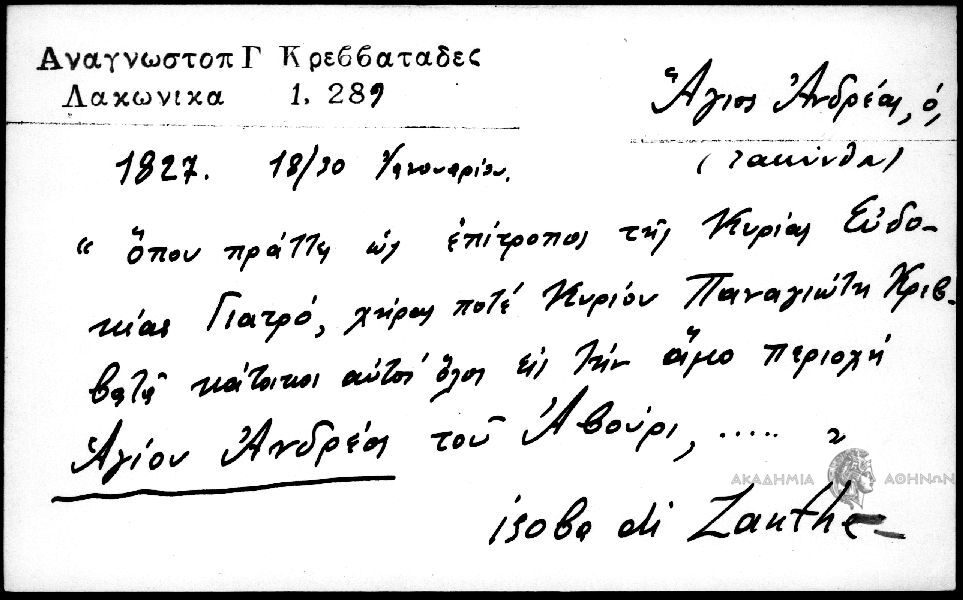 Αναγνωστοπ Γ Κρεββαταδες
Λακωνικα 1. 289
Ἅγιος Ἀνδρέας, ὁ,
(Ζακύνθῳ)
1827. 18/30 Ἰανουαρίου.
“ ὅπου πράττει ὡς ἐπίτροπος τῆς Κυρίας Εὐδο-
κίας Γιατρό, χήρας ποτέ Κυρίου Παναγιώτη Κριβ-
βατᾶ κάτοικοι αὐτοί ὅλοι εἰς τήν ἄμο περιοχή
Ἁγίου Ἀνδρέας τοῦ Ἀβούρι, ..... "
ΑΚΑΔΗΜΙΑ ΑΘΗΝΩΝ
isoba di Zanthe